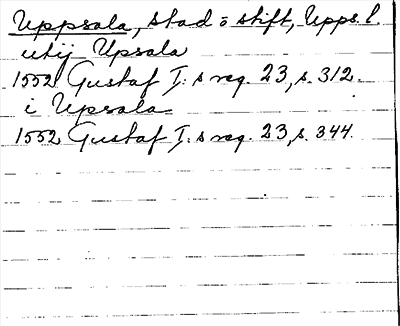 Uppsala, stad o stift, Upps. l.
utij Upsala
1552 Gustaf I:s reg. 23, s. 312.
i Upsala
1552 Gustaf I:s reg. 23, s. 344.